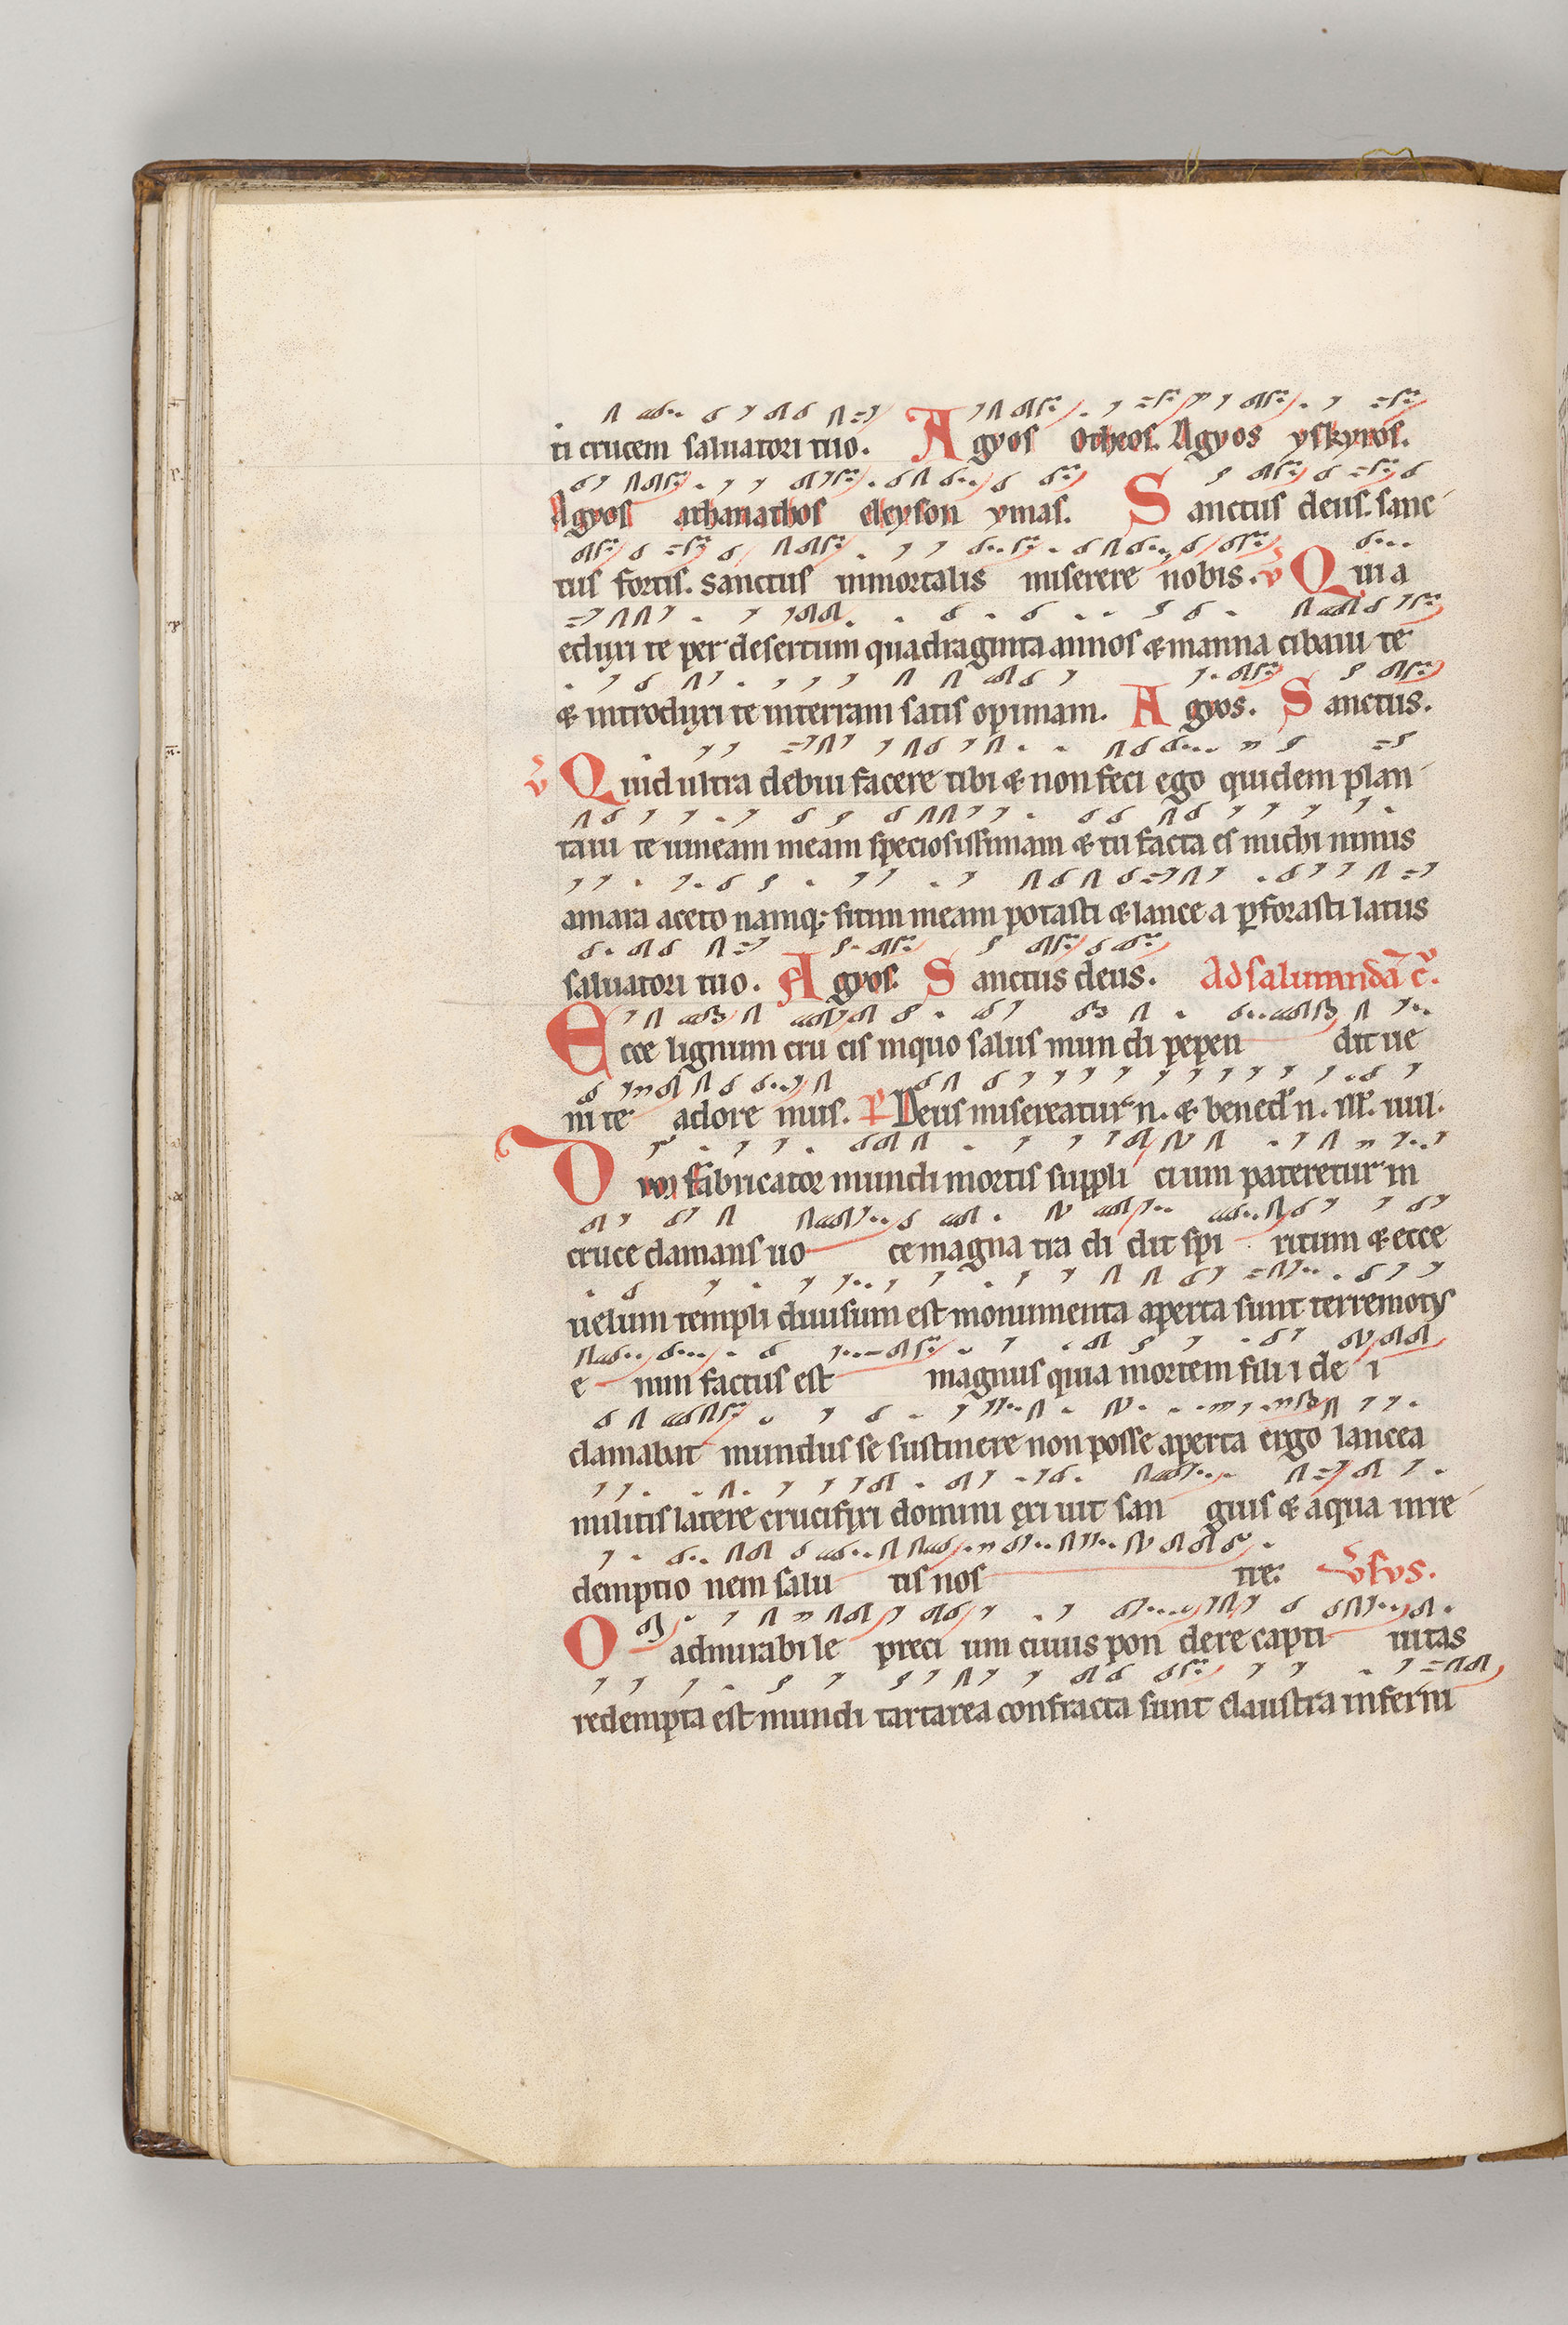 ti crucem saluatori tuo. Agyos Otheos. Agyos yskyros.
Agyos athanathos eleyson ymas. Sanctus deus. sanc
tus fortis. sanctus inmortalis miserere nobis. v Quia
eduxi te per desertum quadraginta annos & manna cibaui te
& introduxi te interram satis opimam. Agyos. Sanctus.
v Quid ultra debui facere tibi & non feci ego quidem plan
taui te uineam meam speciosissimam & tu facta es michi nimis
amara aceto namq; sitim meam potasti & lance a pforasti latus
saluatori tuo. Agyos. Sanctus deus. Ad salutandā c̄.
Ecce lignum cru cis inquo salus mun di pepen dit ue
ni te adore mus. P Deus misereatur n. & bened n.
Dum fabricator mundi mortis suppli cium pateretur in
cruce clamans uo ce magna tra di dit spi ritum & ecce
uelum templi diuisum est monumenta aperta sunt terremotus
e nim factus est magnus quia mortem fili i de i
clamabat mundus se sustinere non posse aperta ergo lancea
militis latere crucifixi domini exi uit san guis & aqua inre
demptio nem salu tis nos tre. vsvs.
O admirabi le preci um cuius pon dere capti uitas
redempta est mundi tartarea confracta sunt claustra inferni